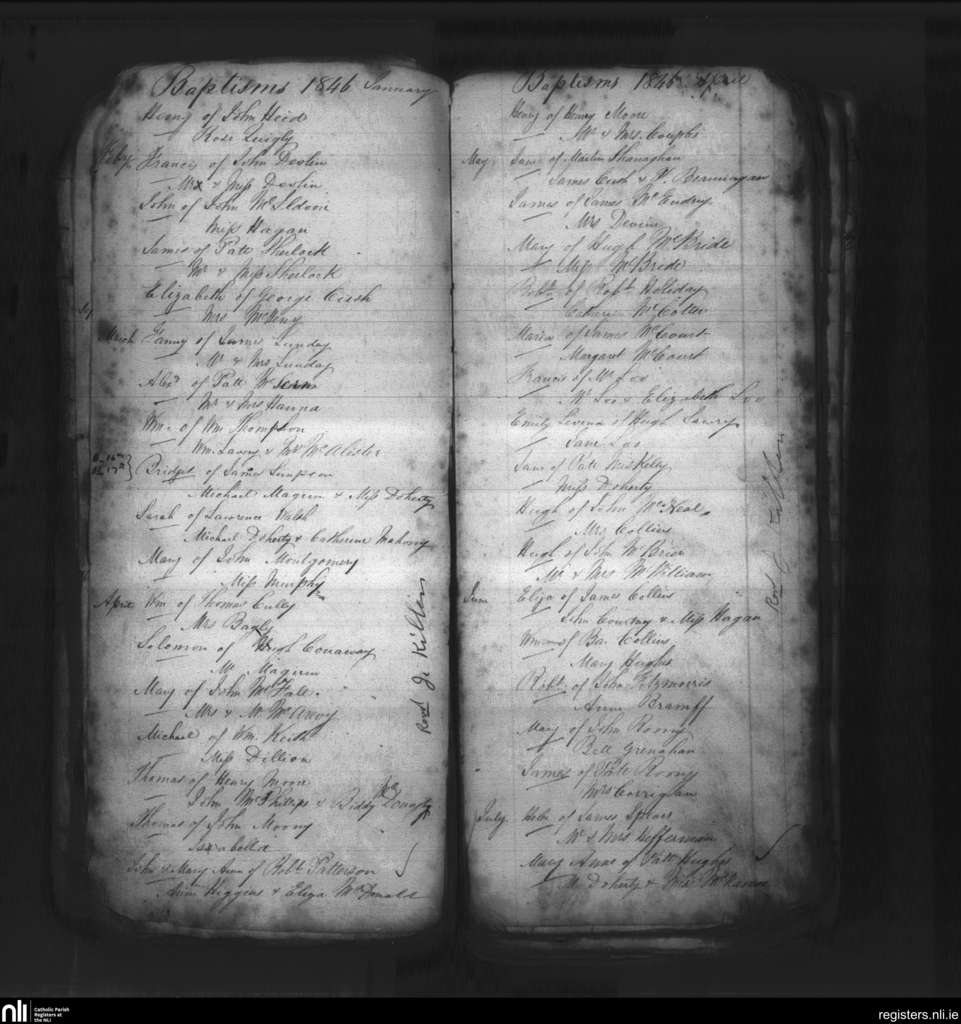 Baptisms 1846 January
Henry of John Heid
Rose Quigly
Feby Francis of John Devlin
Mrx & Miss Devlin
John of John
Miss Hagan
James of Patt Sherlock
Mr & Miss Sherlock
Elizabeth of George Cush
Mrs McKeny
March Fanny of James Lunday
Mr & Mrs Lunday
Alexr of Patt
Mr & Mrs Hanna
Wm. of Wm Thompson
Wm. Lavry & Mr McAlister
Bridget of James Simpson
Michael Maguin & Miss Doherty
Sarah of Lawrence Walsh
Michael Doherty & Catherine Mahony
Mary of John Montgomery
Miss Murphy
April Wm of Thomas Cully
Mrs Bagly
Solomon of Hugh Conaway
Mr Maguin
Mary of John McFall
Mrs & Mr McAvoy
Michael of Wm. Keith
Miss Dillion
Thomas of Henry Moon
John McPhillips & Biddy
Thomas of John Moony
Isxabella
John & Mary Ann of Robt Patterson
Ann Higgins & Eliza McDonald
Rood Jo Killen
Baptisms 1846 April
Henry of Henry Moone
Mr & Mrs Couples
May Jane of Martin Shanaghan
James Cush & P. Bermingan
James of James McEndry
Mrs Devine
Mary of Hugh McBride
Miss McBride
Robt of Robt Holiday
Cathrin McCotter
Maria of James McCourt
Margaret McCourt
Francis of Mr Loo
Mr Loo & Elizabeth Loo
Emily Levina of Hugh Lawry
Jane Loo
Jane of Patt Miskelly
Miss Doherty
Hugh of John McNeal
Mrs Collins
Hugh of John McBrien
Mr & Mrs McWilliam
June Eliza of James Collins
John Courtny & Miss Hagan
of Bar. Collins
Mary Hughs
Robt. of John Fitzmorris
Anne Bramff
Mary of John Roony
Bell Grenaghan
James of Patt Roony
Mrs Corrighan
July of James Spiers
Mr & Mrs Heffernan
Mary Anne of Patt Hughs
Mr Doherty & Miss
Rood Jo Killen
nli
Catholic Parish
Registers at
the NLI
registers.nli.ie